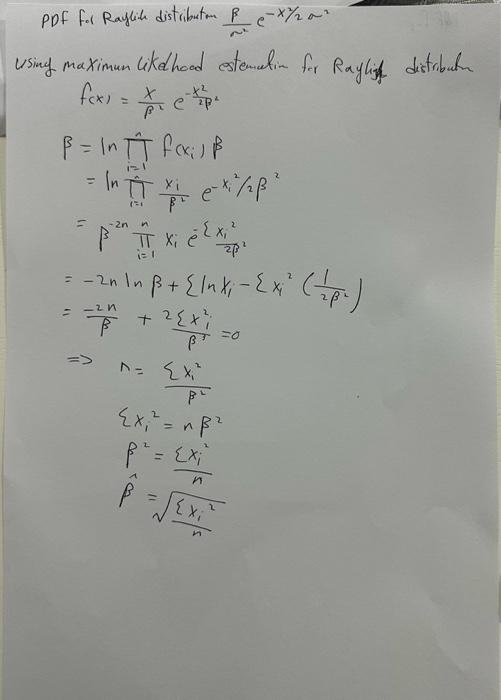 PDF for Raylih distributon β/σ² e^-x²/2σ²
Using maximum likelhood estemation for Rayligh distributn
f(x) = x/β² e^-x²/2β²
β = ln ∏ i=1 n f(xi) β
= ln ∏ i=1 n xi/β² e^-xi²/2β²
= β^-2n ∏ i=1 n xi e^-Σxi²/2β²
= -2n ln β + Σ ln xi - Σ xi² (1/2β²)
= -2n/β + 2Σxi²/β³ =0
=> n = Σxi²/β²
Σxi² = nβ²
β² = Σxi²/n
β̂ = √(Σxi²/n)